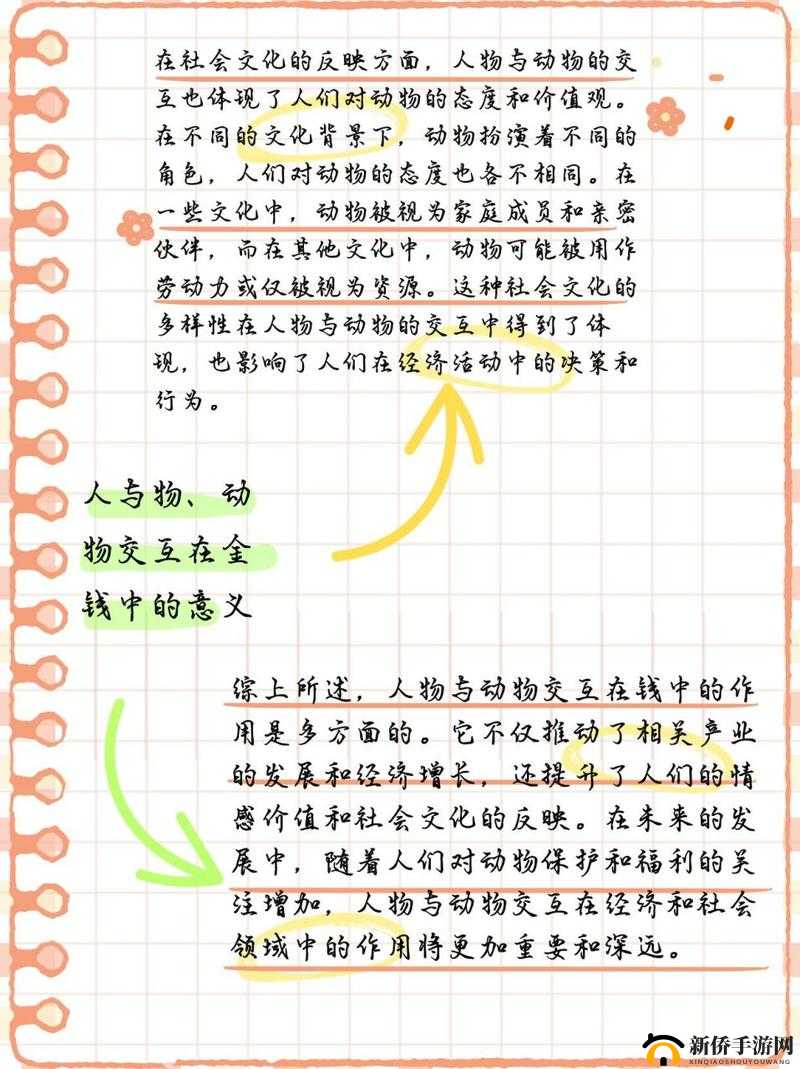 在社会文化的反映方面，人物与动物的交
互也体现了人们对动物的态度和价值观。
在不同的文化背景下，动物扮演着不同的
角色，人们对动物的态度也各不相同。在
一些文化中，动物被视为家庭成员和亲密
伙伴，而在其他文化中，动物可能被用作
劳动力或仅被视为资源。这种社会文化的
多样性在人物与动物的交互中得到了体
现，也影响了人们在经济活动中的决策和
行为。
人与物、动
物交互在金
钱中的意义
综上所述，人物与动物交互在钱中的作
用是多方面的。它不仅推动了相关产业
的发展和经济增长，还提升了人们的情
感价值和社会文化的反映。在未来的发
展中，随着人们对动物保护和福利的关
注增加，人物与动物交互在经济和社会
领域中的作用将更加重要和深远。
新侨手游网
XINQIAOSHOUYOUWANG